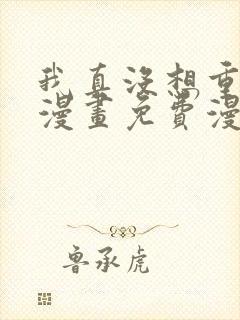 我真没想重
漫畫免費漫
鲁承虎